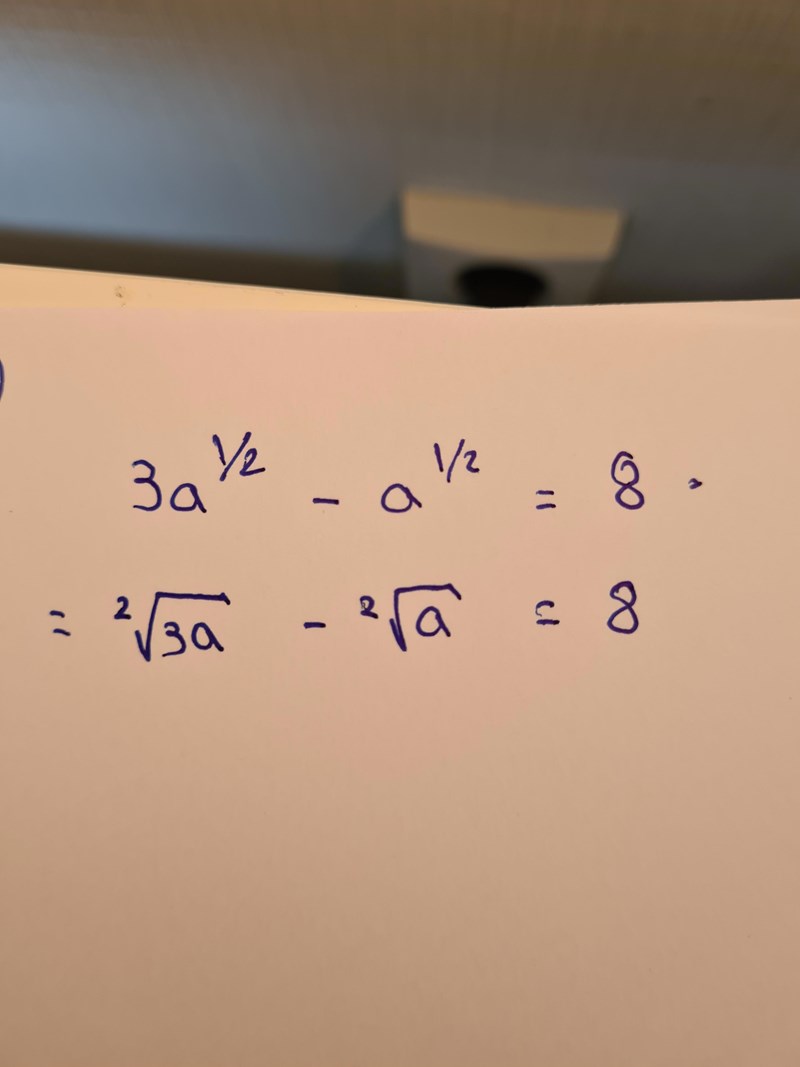 3a^1/2 - a^1/2 = 8 .
= ²√3a - ²√a = 8